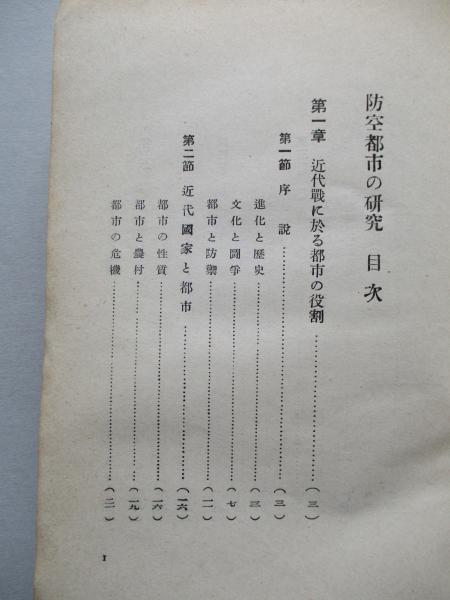 防空都市の研究 目次
第一章 近代戰に於る都市の役割……………………(三)
第一節 序説……………………(三)
進化と歴史……………………(三)
文化と闘爭……………………(七)
都市と防禦……………………(一一)
第二節 近代國家と都市……………………(一六)
都市の性質……………………(一六)
都市と農村……………………(一九)
都市の危機……………………(二一)
1